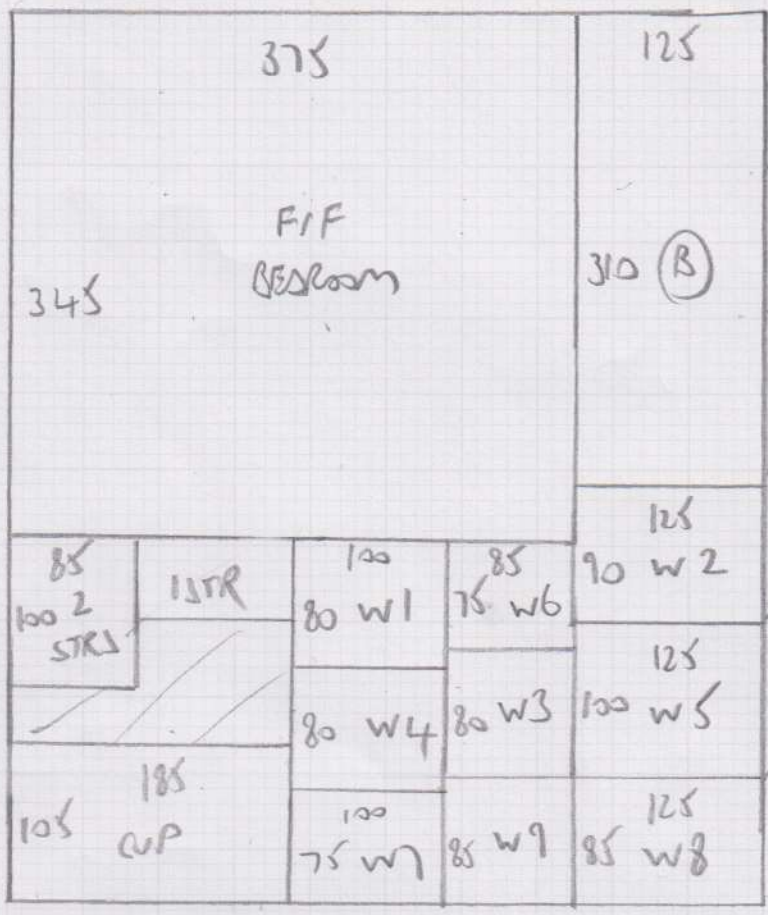 375
125
F/F
BEDROOM
345
310 B
85
100 2
STRS
1STR
100
80 W1
85
75 W6
125
90 W2
80 W4
80 W3
125
100 W5
185
105
CUP
100
75 W7
85 W9
125
85 W8